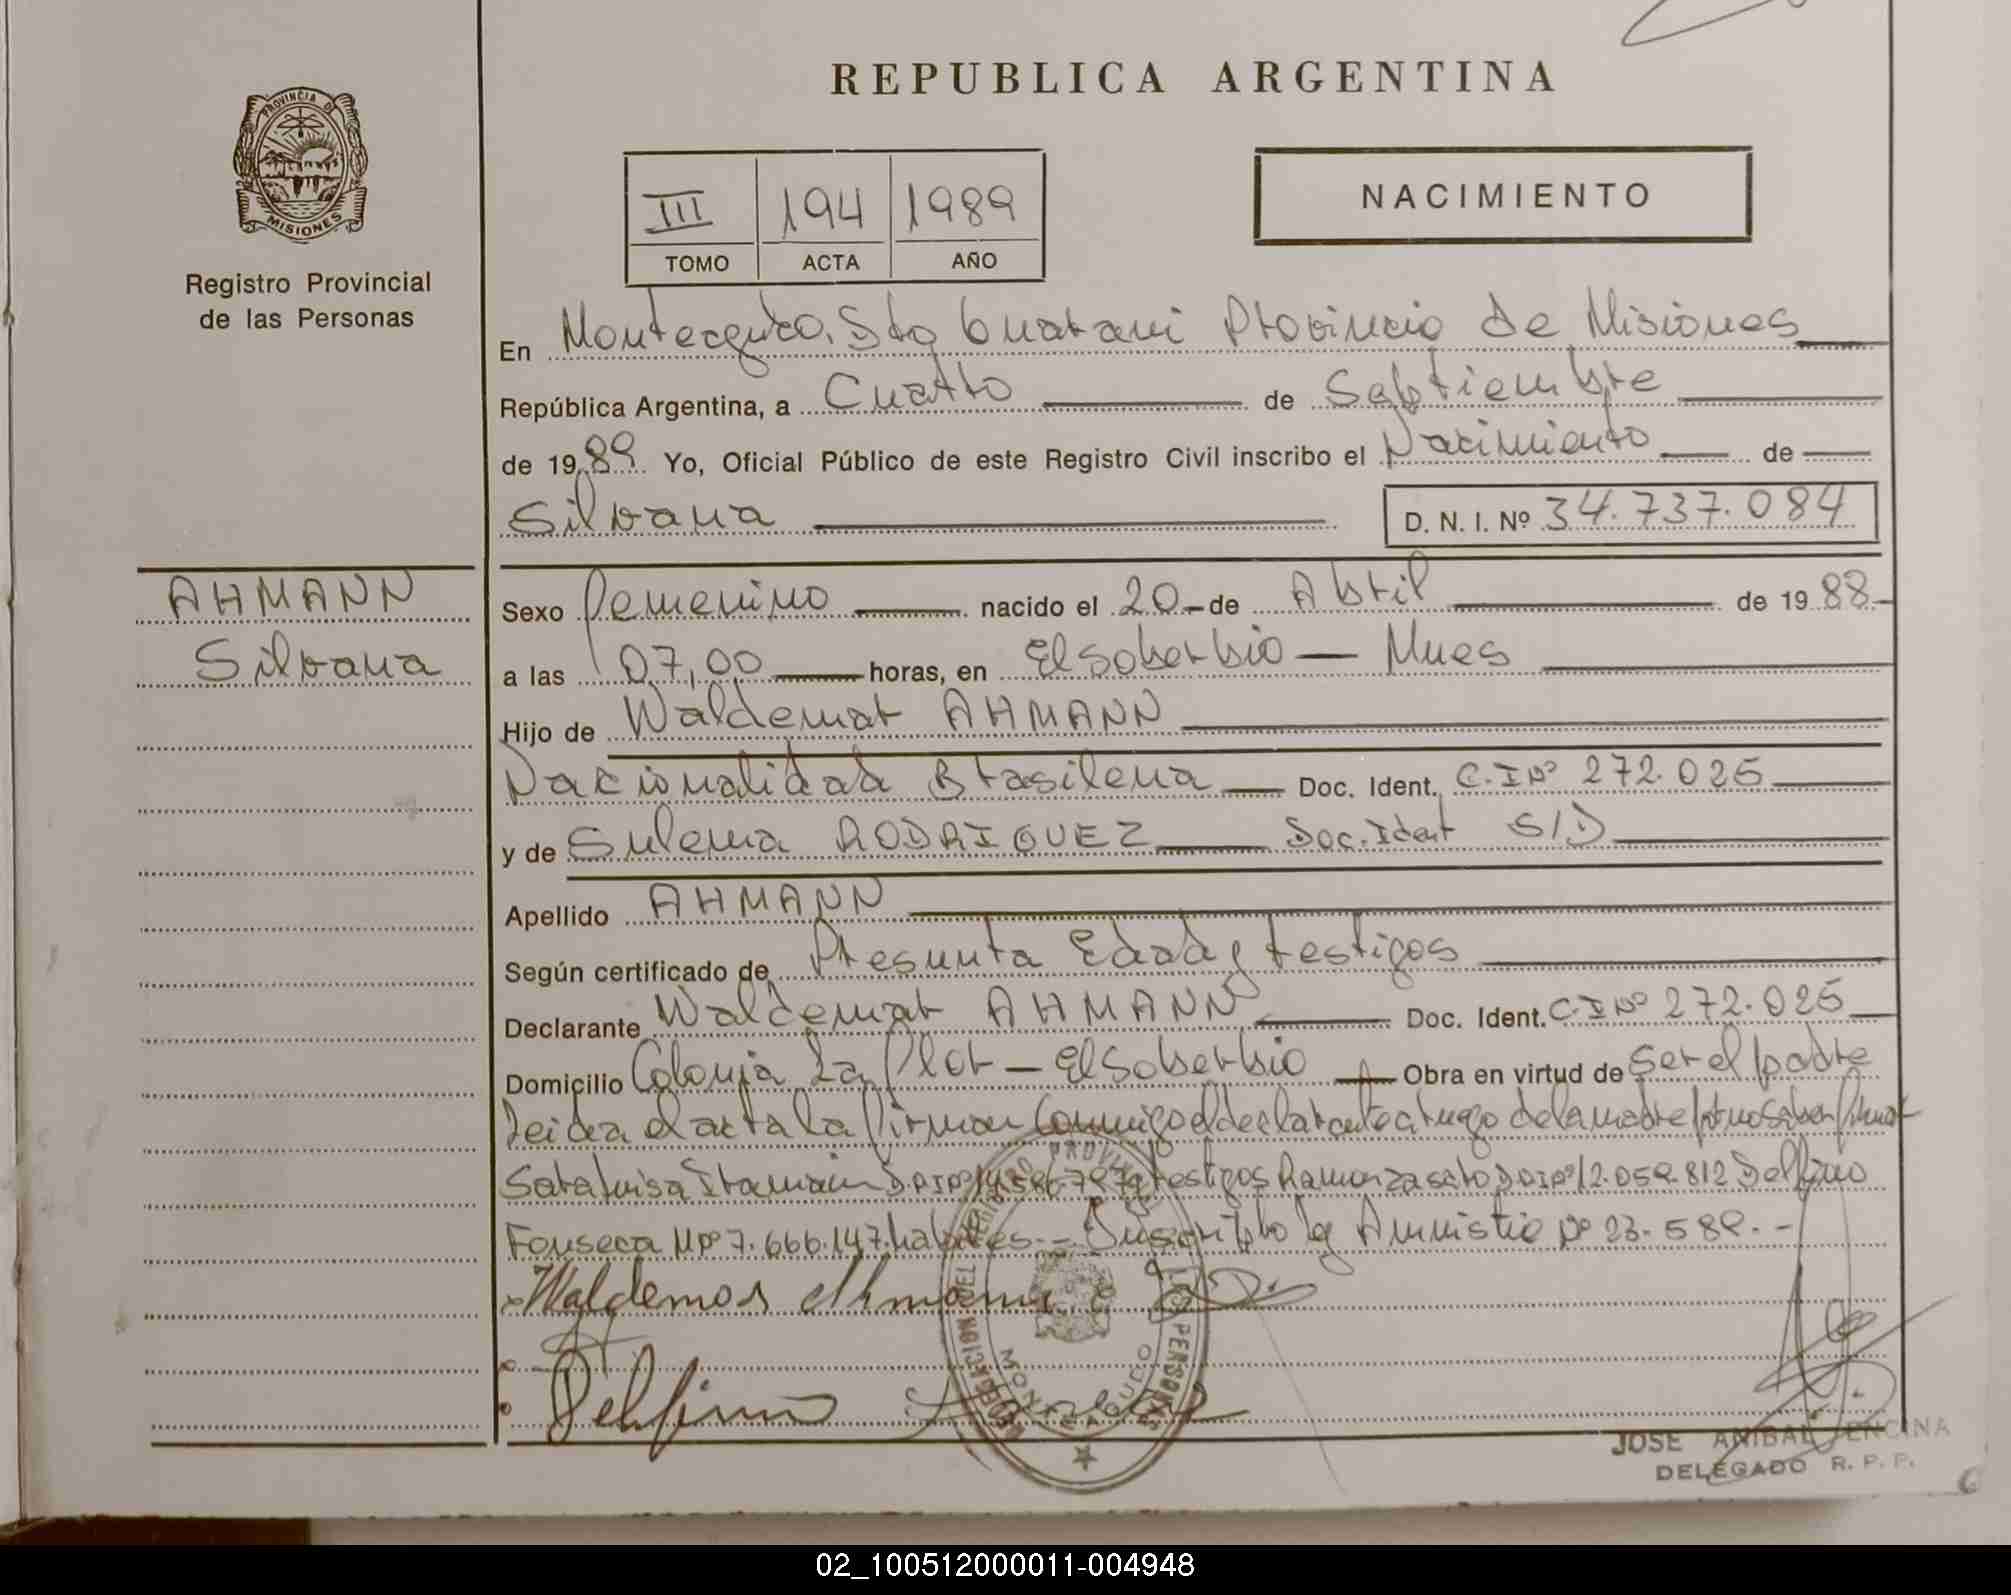 REPUBLICA ARGENTINA
PROVINCIA DE MISIONES
Registro Provincial
de las Personas
III 194 1989
TOMO ACTA AÑO
NACIMIENTO
En Monteagudo. Dto Guarani Provincia de Misiones
República Argentina, a Cuatro de Septiembre
de 1989 Yo, Oficial Público de este Registro Civil inscribo el Nacimiento de
Silvana D. N. I. Nº 34.737.084
AHMANN
Silvana
Sexo femenino nacido el 20 de Abril de 1988
a las 07,00 horas, en El Soberbio — Mnes
Hijo de Waldemar AHMANN
Nacionalidad Brasilena Doc. Ident. C.I Nº 272.025
y de Sulema RODRIGUEZ Doc. Ident S/D
Apellido AHMANN
Según certificado de Presunta Edad y testigos
Declarante Waldemar AHMANN Doc. Ident. C.I Nº 272.025
Domicilio Colonia La Flor — El Soberbio Obra en virtud de Ser el padre
Leida el acta la firman Conmigo el declarante a ruego de la madre por no saber firmar
Sara Luisa Itamain testigos Ramon 12.059.812 Delfino
Fonseca Nº 7.666.147 habiles — Suscripto Ley Amnistia Nº 23.589. -
Waldemar Ahmann
Delfino
MONTEAGUDO
JOSE ANIBAL ENCINA
DELEGADO R. P. P.
02_100512000011-004948